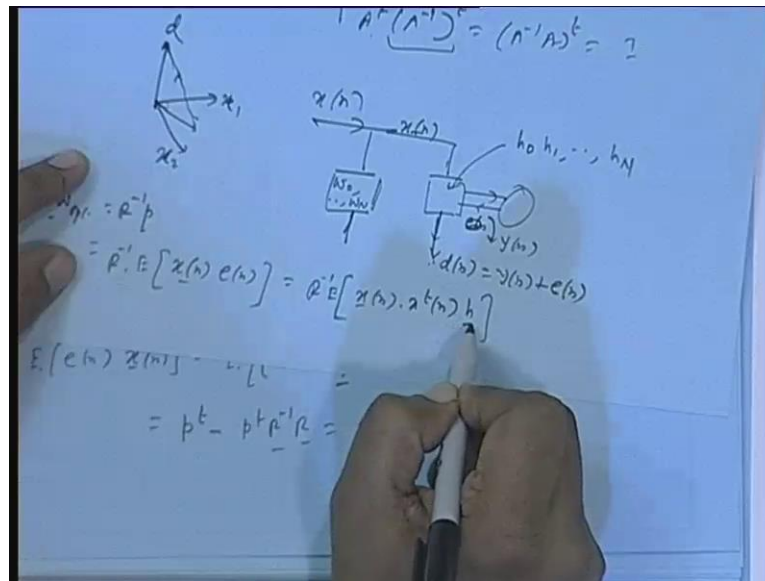 A^t (A^{-1})^t = (A^{-1}A)^t = ?
d
x_1
x_2
x(n)
x(n)
h_0 h_1, ..., h_N
w_0, .., w_N
e(n)
y(n)
d(n) = y(n) + e(n)
= R^{-1} p
= R^{-1} . E[x(n) e(n)] = R^{-1} E[x(n) . x^t(n) h]
E.[e(n) x(n)]
= p^t - p^t R^{-1} R =